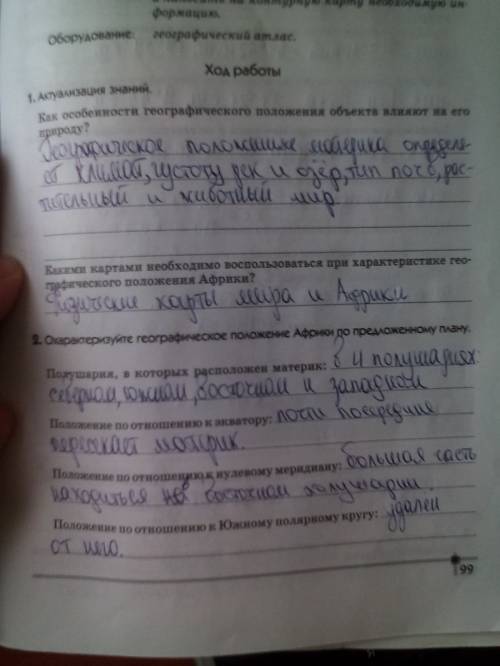 и нанесите на контурную карту необходимую ин-
формацию.
Оборудование: географический атлас.
Ход работы
1. Актуализация знаний.
Как особенности географического положения объекта влияют на его
природу?
Географическое положение материка определя-
ет климат, густоту рек и озёр, тип почв, рас-
тительный и животный мир
Какими картами необходимо воспользоваться при характеристике гео-
графического положения Африки?
Физические карты мира и Африки
2. Охарактеризуйте географическое положение Африки по предложенному плану.
Полушария, в которых расположен материк: В 4 полушариях:
северном, южном, восточном и западном
Положение по отношению к экватору: почти посередине
пересекает материк.
Положение по отношению к нулевому меридиану: большая часть
находиться в восточном полушарии.
Положение по отношению к Южному полярному кругу: удалён
от него.
99